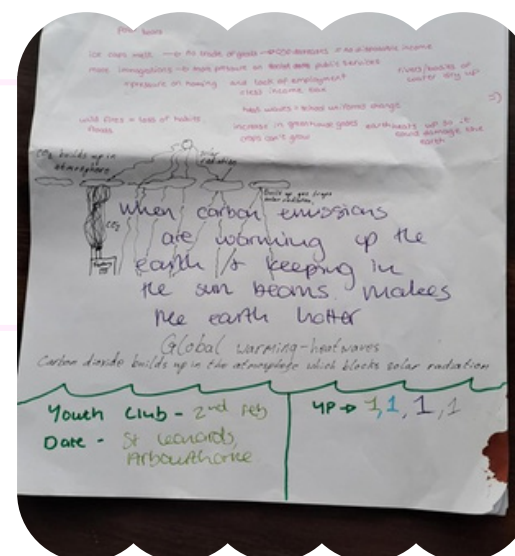 ice caps melt → no trade of goods → GDP decreases → no disposable income
more immigrations → more pressure on public services
rivers/bodies of water dry up
→ pressure on housing and lack of employment
→ less income tax
heat waves = school uniforms change
wild fires = loss of habitat
floods
increase in greenhouse gases
crops can't grow
earth heats up so it could damage the earth
CO2 builds up in atmosphere
solar radiation
CO2
when carbon emissions
are warming up the
earth & keeping in
the sun beams. makes
the earth hotter
Global warming-heatwaves
Carbon dioxide builds up in the atmosphere which blocks solar radiation
Youth Club - 2nd Feb
Date - St Leonards,
Arbourthorne
YP → 1, 1, 1, 1